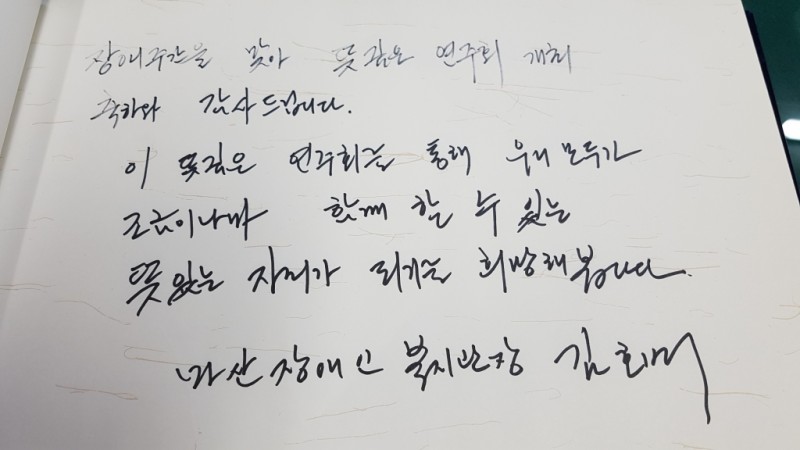 장애주간을 맞아 뜻깊은 연주회 개최
축하와 감사드립니다.
이 뜻깊은 연주회를 통해 우리 모두가
조금이나마 함께 할 수 있는
뜻있는 자리가 되기를 희망해봅니다.
장애인 복지관장 김